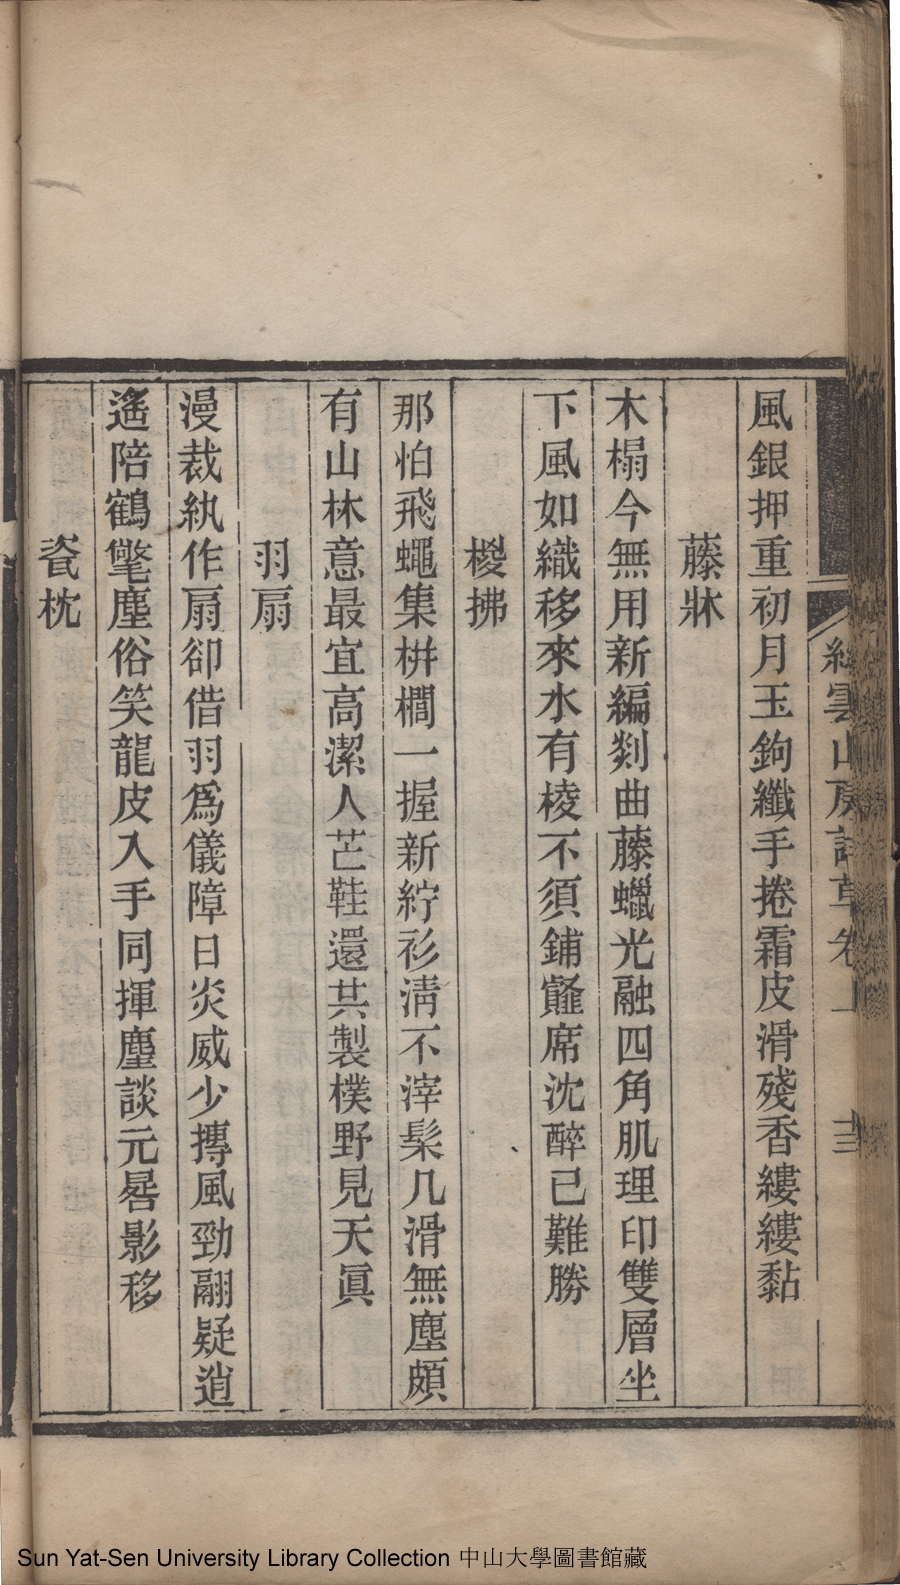 雲山房詩草卷上
風銀押重初月玉鉤纖手捲霜皮滑殘香縷縷黏
藤牀
木榻今無用新編剡曲藤蠟光融四角肌理印雙層坐
下風如織移來水有棱不須鋪氍席沈醉已難勝
椶拂
那怕飛蠅集栟櫚一握新紵衫淸不滓髹几滑無塵頗
有山林意最宜高潔人芒鞋還共製樸野見天眞
羽扇
漫裁紈作扇卻借羽爲儀障日炎威少摶風勁翮疑逍
遙陪鶴氅塵俗笑龍皮入手同揮麈談元晷影移
瓷枕
Sun Yat-Sen University Library Collection 中山大學圖書館藏